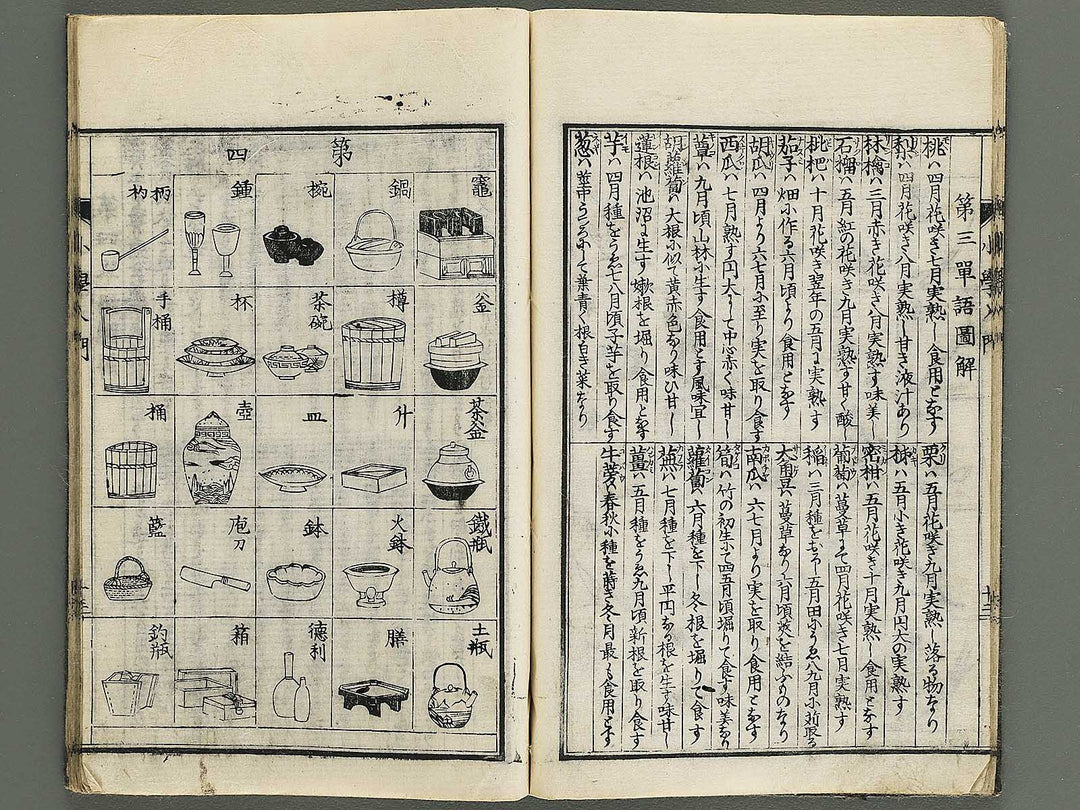 第三單語圖解
桃ハ四月花咲き七月実熟し食用となす
梨ハ四月花咲き八月実熟し甘き液汁あり
林檎ハ三月赤き花咲き八月実熟す味美し
石榴ハ五月紅の花咲き九月実熟す甘く酸し
枇杷ハ十月花咲き翌年の五月に実熟す
茄子ハ畑に作る六月頃より食用となす
胡瓜ハ四月より六七月に至り実を取り食す
西瓜ハ七月熟す円大にして中心赤く味甘し
蕈ハ九月頃山林に生す食用とす風味宜し
胡蘿蔔ハ大根に似て黄赤色なり味ひ甘し
蓮根ハ池沼に生す嫩根を堀り食用となす
芋ハ四月種をうゑ七八月頃子芋を取り食す
葱ハ葉中うつろにして葉青く根白き菜なり
栗ハ五月花咲き九月実熟し落る物なり
柿ハ五月小き花咲き九月円大の実熟す
密柑ハ五月花咲き十月実熟し食用となす
葡萄ハ蔓草にて四月花咲き七月実熟す
稲ハ三月種をおろし五月田にうゑ八九月に苅取る
大角豆ハ蔓草なり六月頃莢を結ぶものなり
南瓜ハ六七月より実を取り食用となす
筍ハ竹の初生にて四五月頃堀りて食す味美なり
蘿蔔ハ六月種を下し冬根を堀りて食す
蕪ハ七月種を下し平円なる根を生す味甘し
薑ハ五月種をうゑ九月頃新根を取り食す
牛蒡ハ春秋に種を蒔き冬月最も食用とす
小學入門
十二
第四
竈
鍋
椀
鍾
柄杓
釜
樽
茶碗
杯
手桶
茶釜
升
皿
壺
桶
鐵瓶
火鉢
鉢
庖刀
籃
土瓶
膳
德利
箱
釣瓶
小學入門